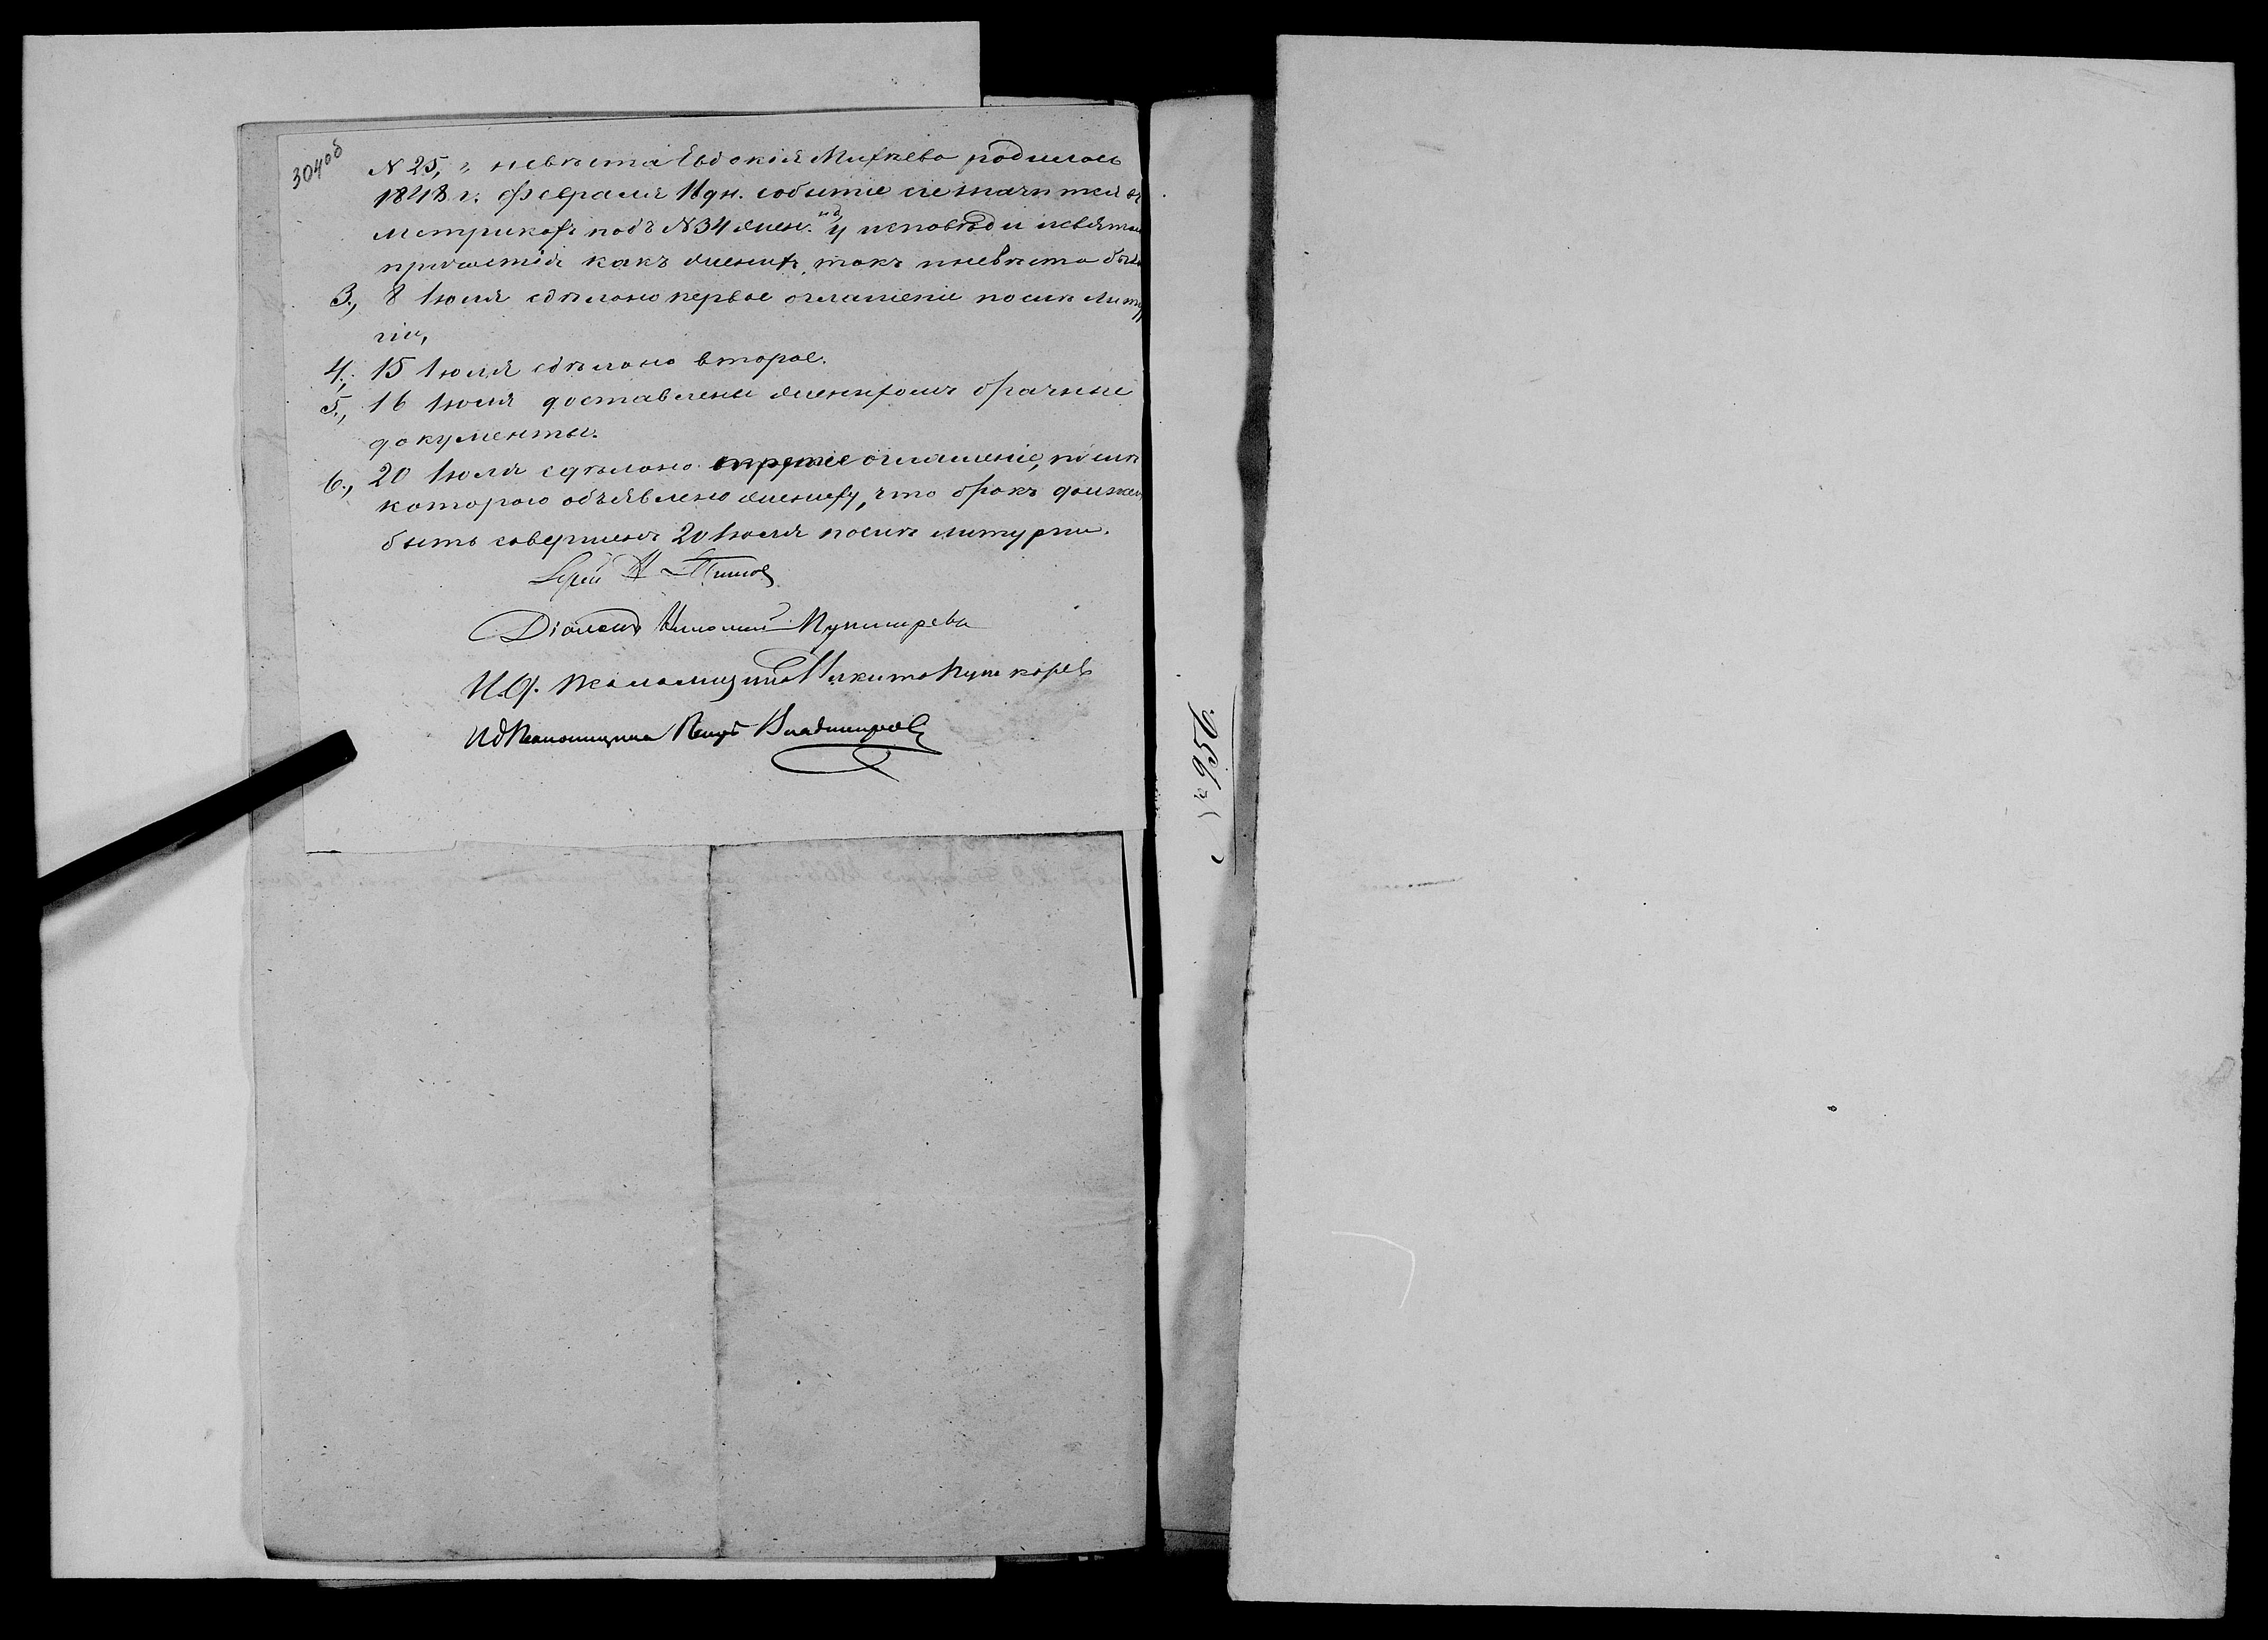 304 об
N 25, " невѣста Евдокія Михѣева родилась
1848 г. февраля 11 дн. событіе сіе значится въ
метрикахъ подъ N 34 жен. пол. у исповѣди и святаго
причастія какъ женихъ, такъ и невѣста были
3., 8 Іюля сдѣлано первое оглашеніе послѣ Литур
гіи,
4., 15 Іюля сдѣлано второе.
5., 16 Іюля доставлены женихомъ брачные
документы.
6., 20 Іюля сдѣлано третіе оглашеніе, послѣ
котораго объявлено жениху, что бракъ долженъ
быть совершенъ 20 Іюля послѣ литургіи.
Іерей
Діаконъ Николай
И. д. Псаломщика Никита Пушкаревъ
И д Псаломщика Петръ Владимировъ
№ 956.